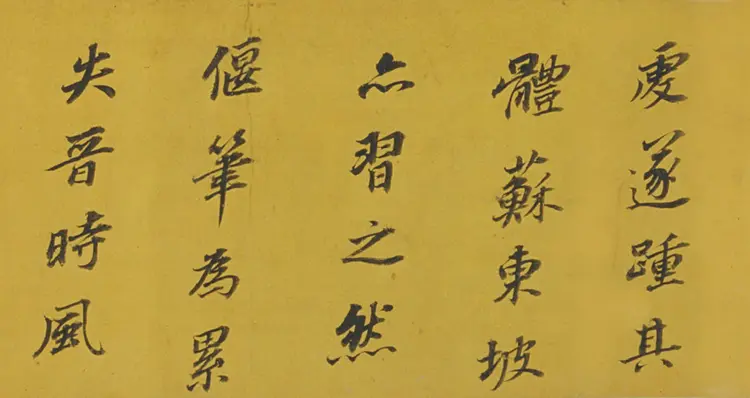 虔遂踵其
體蘇東坡
亦習之然
偃筆為累
失晉時風